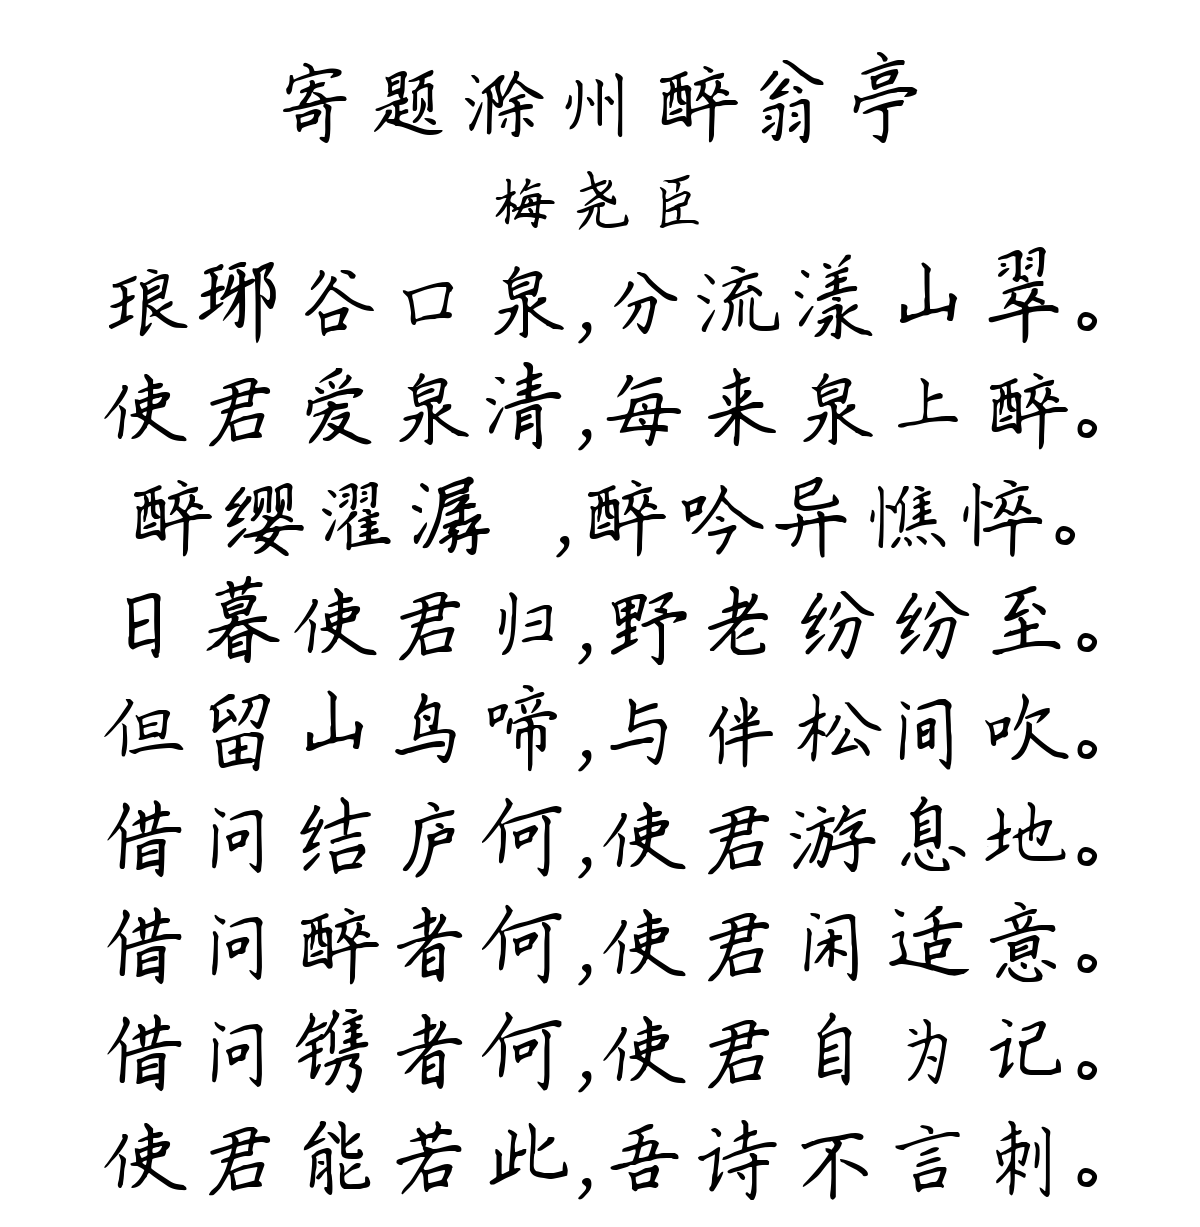 寄题滁州醉翁亭
梅尧臣
琅琊谷口泉,分流漾山翠。
使君爱泉清,每来泉上醉。
醉缨濯潺 ,醉吟异憔悴。
日暮使君归,野老纷纷至。
但留山鸟啼,与伴松间吹。
借问结庐何,使君游息地。
借问醉者何,使君闲适意。
借问镌者何,使君自为记。
使君能若此,吾诗不言刺。